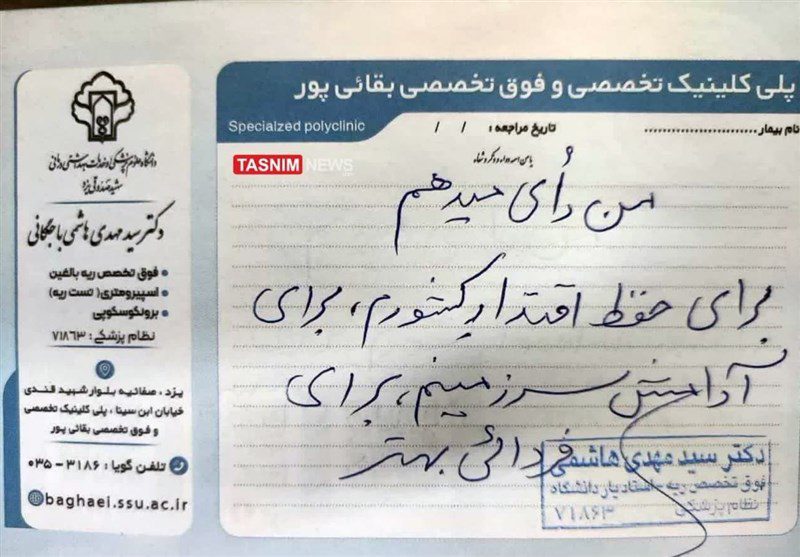 پلی کلینیک تخصصی و فوق تخصصی بقائی پور
Specialzed polyclinic
نام بیمار: ........................ تاریخ مراجعه: / /
TASNIM NEWS
من رأی میدهم
برای حفظ اقتدار کشورم، برای
آرامش سرزمینم، برای
فردائی بهتر
دکتر سید مهدی هاشمی
فوق تخصص ریه - استادیار دانشگاه
نظام پزشکی
۷۱۸۶۳
دانشگاه علوم پزشکی و خدمات بهداشتی درمانی
شهید صدوقی یزد
دکتر سید مهدی هاشمی باجگانی
• فوق تخصص ریه بالغین
• اسپیرومتری( تست ریه)
• برونکوسکوپی
نظام پزشکی: ۷۱۸۶۳
یزد ، صفائیه بلوار شهید قندی
خیابان ابن سینا ، پلی کلینیک تخصصی
و فوق تخصصی بقائی پور
تلفن گویا : ۳۱۸۶ - ۰۳۵
baghaei.ssu.ac.ir